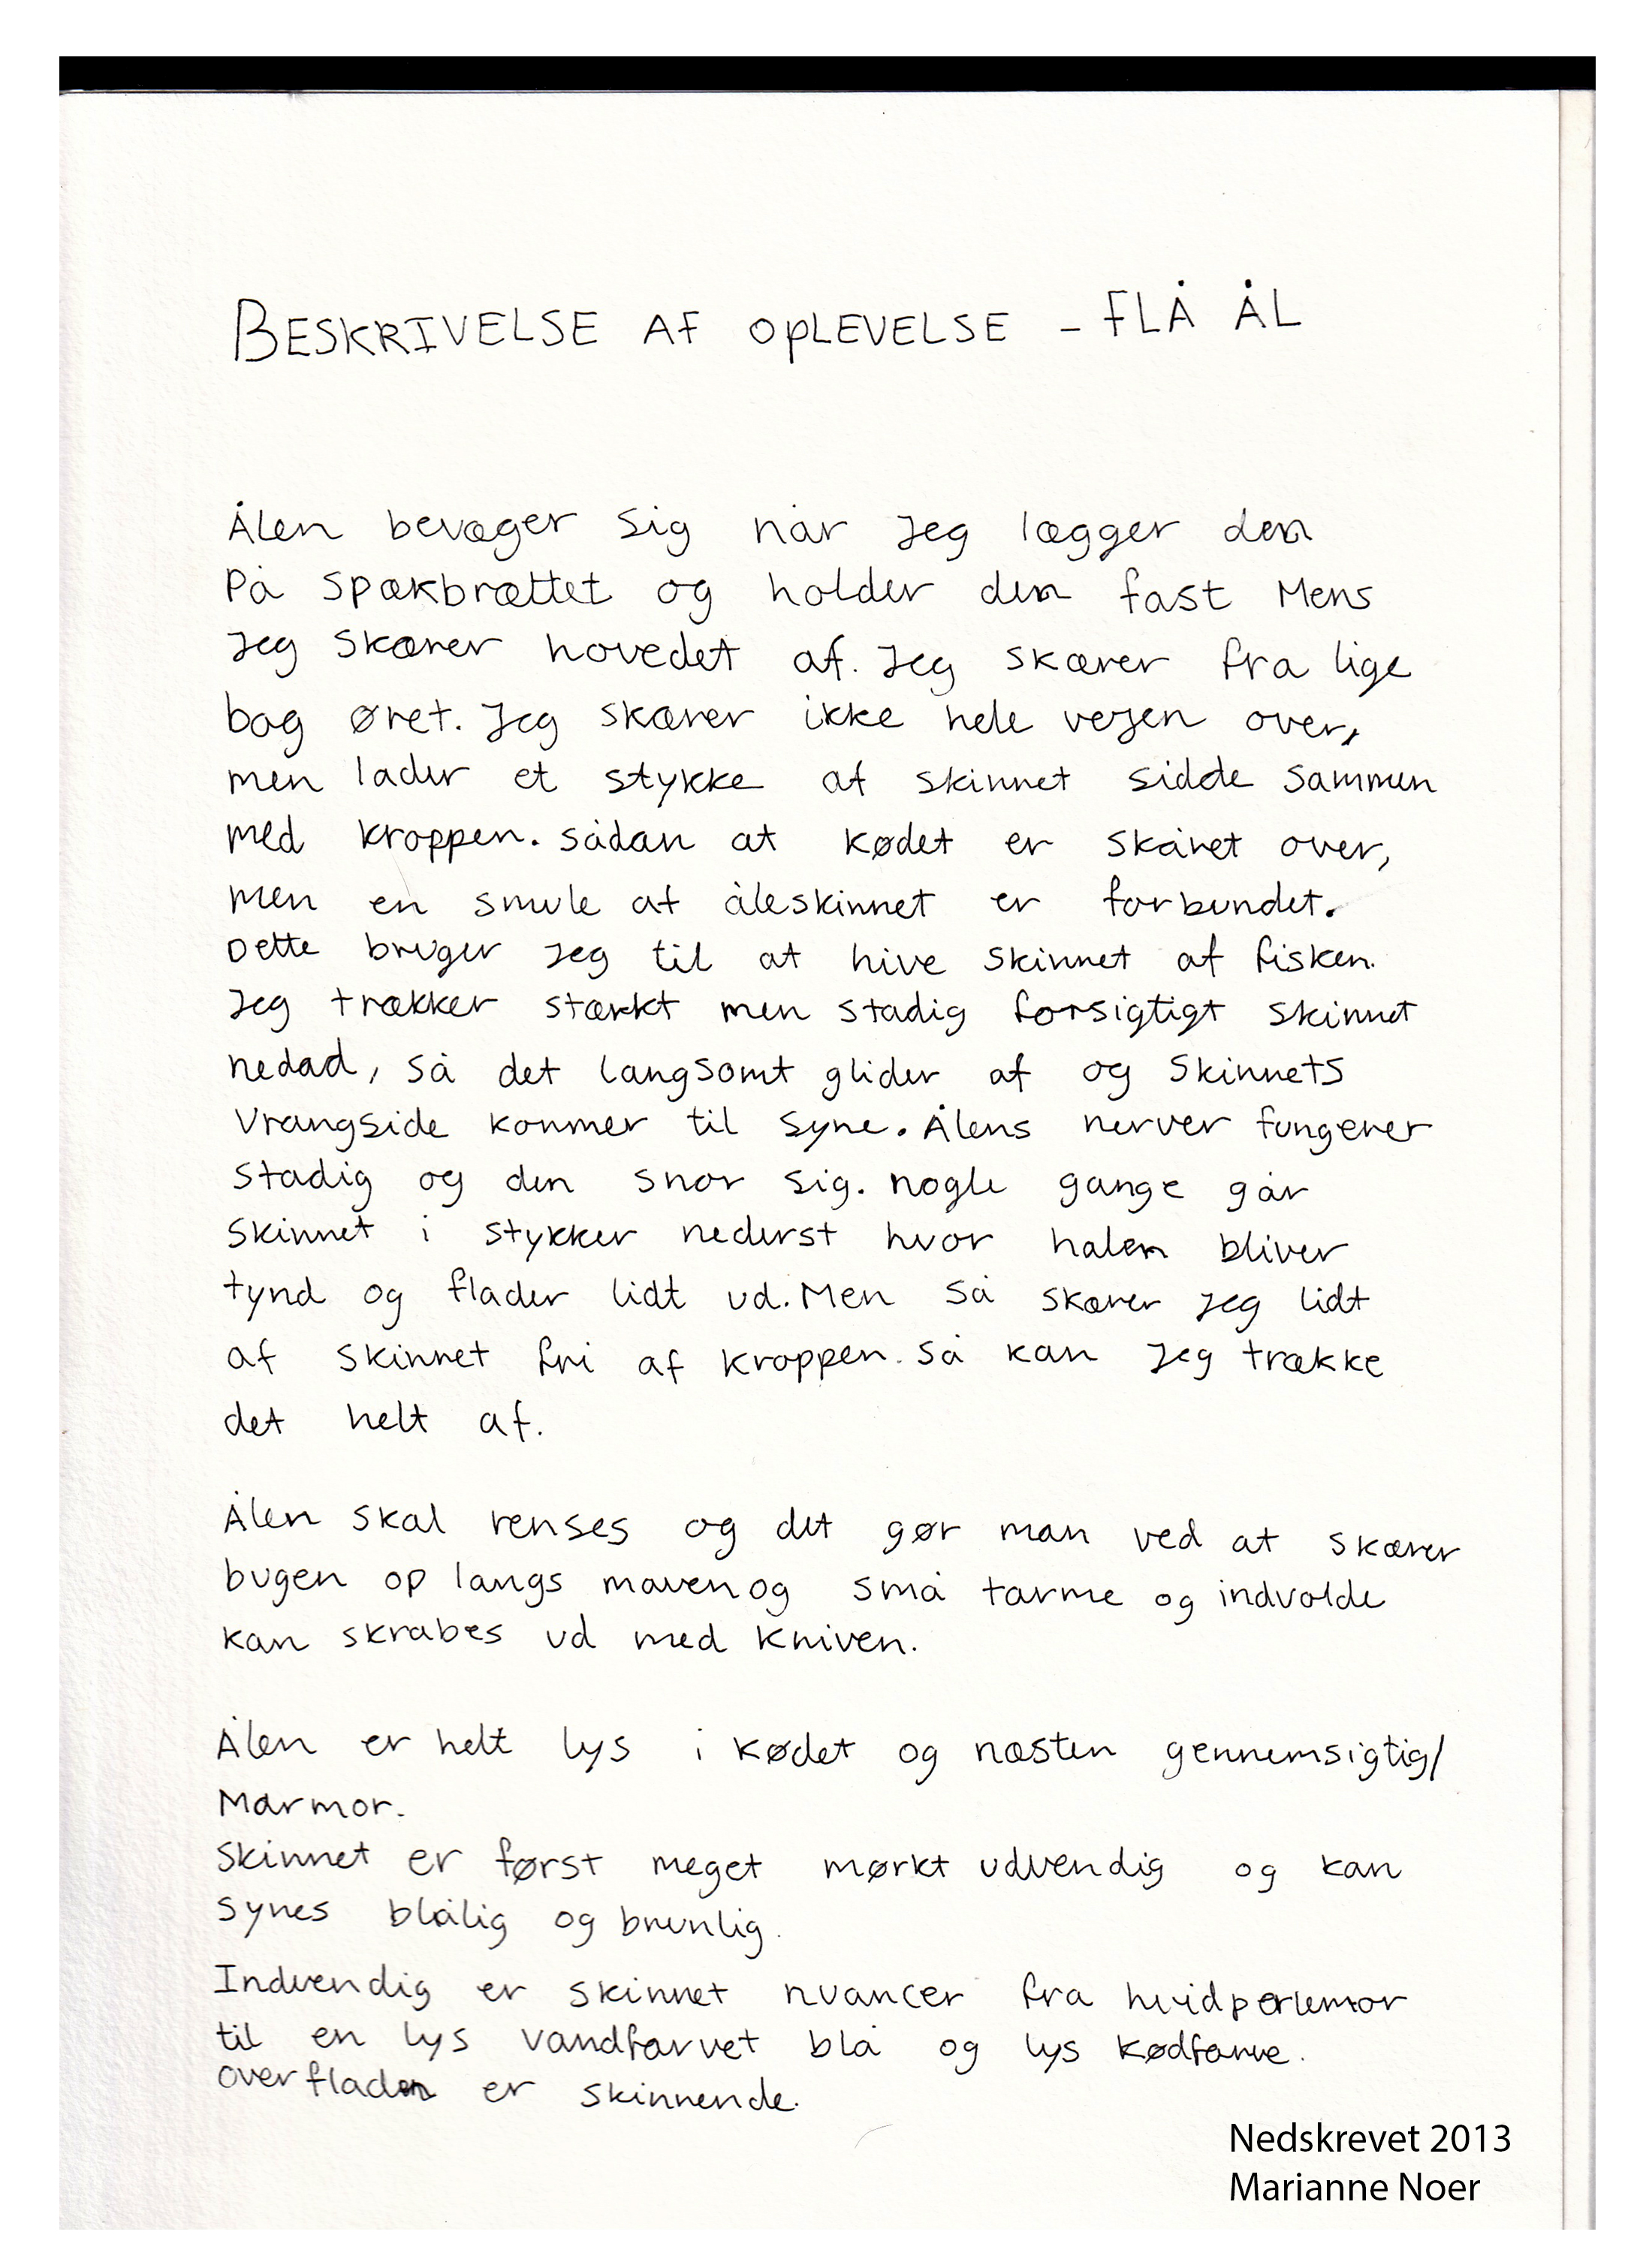 BESKRIVELSE AF OPLEVELSE - FLÅ ÅL
Ålen bevæger sig når jeg lægger den
På spækbrættet og holder den fast Mens
jeg skærer hovedet af. Jeg skærer fra lige
bag øret. Jeg skærer ikke hele vejen over,
men lader et stykke af skinnet sidde sammen
med kroppen. sådan at kødet er skåret over,
men en smule af åleskinnet er forbundet.
Dette bruger jeg til at hive skinnet af fisken.
Jeg trækker stærkt men stadig forsigtigt skinnet
nedad, så det langsomt glider af og skinnets
vrangside kommer til syne. Ålens nerver fungerer
stadig og den snor sig. nogle gange går
skinnet i stykker nederst hvor halen bliver
tynd og flader lidt ud. Men så skærer jeg lidt
af skinnet fri af kroppen. så kan jeg trække
det helt af.
Ålen skal renses og det gør man ved at skærer
bugen op langs maven og små tarme og indvolde
kan skrabes ud med kniven.
Ålen er helt lys i kødet og næsten gennemsigtig/
Marmor.
Skinnet er først meget mørkt udvendig og kan
synes blålig og brunlig.
Indvendig er skinnet nuancer fra hvidperlemor
til en lys vandfarvet blå og lys kødfarve.
overfladen er skinnende.
Nedskrevet 2013
Marianne Noer